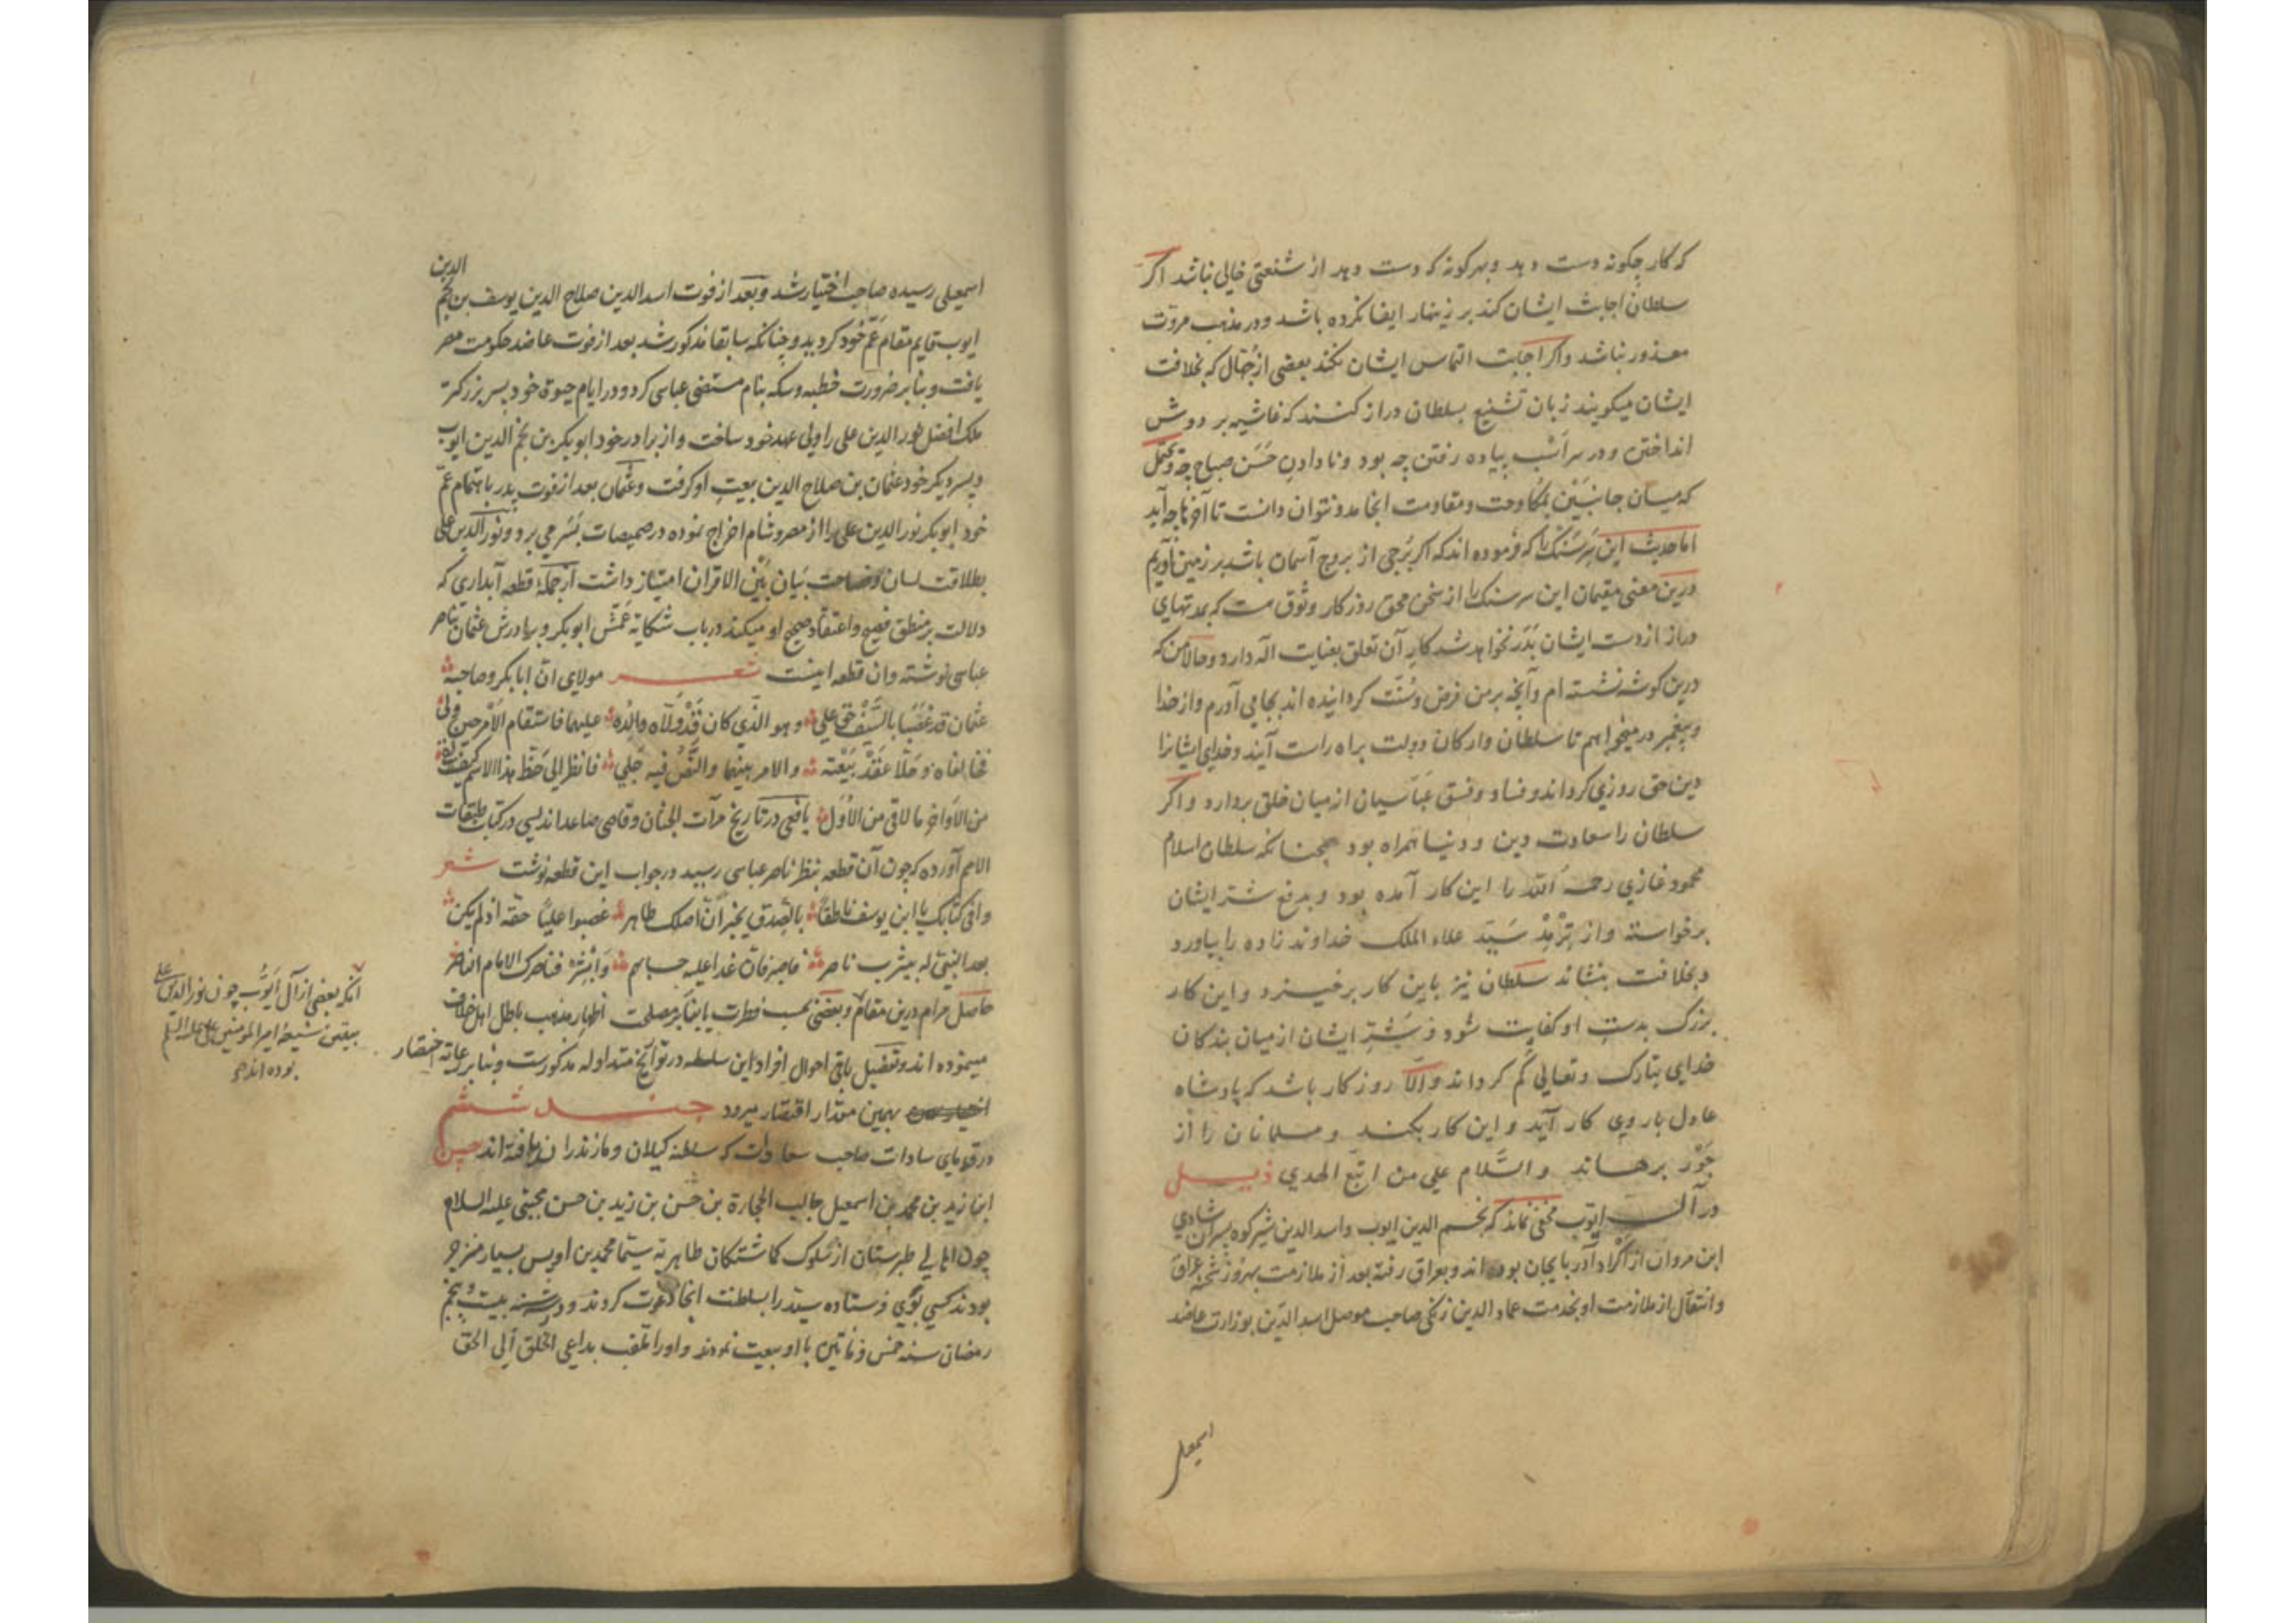 که کار چگونه دست دهد و بهر کونه که دست دهد از شنعتی خالی نباشد اکر
سلطان اجابت ایشان کند بر زینهار ایفا نکرده باشد و در مذهب مروت
معذور نباشد و اکر اجابت التماس ایشان نکند بعضی از جُهّال که بخلافت
ایشان میکویند زبان تشنیع بسلطان دراز کنند که غاشیه بر دوش
انداختن و در سر اَسْب پیاده رفتن چه بود و نادادن حَسَن صباح چه و یحتمل
که میان جانِبَیْن بمُکاوحت و مقاومت انجامد و نتوان دانست تا آخر تا چه آید
اما حدیث این سَرسَنک را که فرموده اند که اکر بُرجی از بروج آسمان باشد بر زمین آوریم
درین معنی مقیمان این سر سنک را از سخن محق روزکار وثوق هست که بمدتهای
دراز از دست ایشان بَدَر نخواهد شد کار آن تعلق بعنایت اله دارد و حالا من که
درین کوشه نشسته ام و آنچه بر من فرض و سُنّت کردانیده اند بجا می آورم و از خدا
و پیغمبر در میخواهم تا سلطان و ارکان دولت براه راست آیند و خدای ایشانرا
دین حق روزی کرداند و فساد و فسق عبّاسیان از میان خلق بردارد و اکر
سلطان را سعادت دین و دنیا همراه بود همچنانکه سلطان اسلام
محمود غازی رحمه الله را این کار آمده بود و بدفع شتر ایشان
برخواسته و از تِرْمِذْ سَیّد علاء الملک خداوند زاده را بیاورد
و بخلافت بنشاند سلطان نیز باین کار برخیزد و این کار
بزرک بدست او کفایت شود و شَرّ ایشان از میان بندکان
خدای تبارک و تعالی کم کرداند و الّا روزکار باشد که پادشاه
عادل با روی کار آید و این کار بکند و مسلمانان را از
جَوْر برهاند والسّلام علی من اتّبع الهدی ذیلی
در آل ایوب مخفی نماند که نجم الدین ایوب و اسد الدین شیرکوه پسران شادی
ابن مروان از اکراد آذربایجان بوده اند و بعراق رفته بعد از ملازمت بهروز شحنه عراق
و انتقال از ملازمت او بخدمت عماد الدین زنکی صاحب موصل اسد الدّین بوزارت عاضد
اسمعیل
الدین
اسمعیلی رسیده صاحب اختیار شد و بعد از فوت اسد الدین صلاح الدین یوسف بن نجم
ایوب قایم مقام عَمّ خُود کردید و چنانکه سابقا مذکور شد بعد از فوت عاضد حکومت مصر
یافت و بنا بر ضرورت خطبه و سکه بنام مستضی عباسی کرد و در ایام حیوة خود پسر بزرکتر
ملک افضل نور الدین علی را ولی عهد خود ساخت و از برادر خود ابو بکر بن نجم الدین ایوب
و پسر دیکر خود عثمان بن صلاح الدین بیعت او کرفت و عثمان بعد از فوت پدر باهتمام عمّ
خود ابو بکر نور الدین علی را از مصر و شام اخراج نموده در صمیصات بسَر می برد و نور الدین علی
بطلاقت لسان و فصاحت بیان بَیْن الاقران امتیاز داشت از جمله قطعه آبداری که
دلالت بر منطق فصیح و اعتقاد صحیح او میکند در باب شکایة عَمّش ابو بکر و برادرش عثمان بناصر
عباسی نوشته و ان قطعه اینست شعر مولای انّ ابا بکر و صاحبه
عثمان قد غَصَبا بالسَّیْف حق علی و هو الذّی کان قَدْ وَلّاه والِدُه علیهما فاستقام الامر حین وَلی
فخالفاه و حَلّا عَقْدَ بَیْعته و الامر بینهما و النَّصّ فیه جَلی فانظر الی حَظّ هذا الاسم کیف لقی
من الاَواخر ما لاقی من الاُوَل یافعی در تاریخ مرآت الجنان و قاضی صاعد اندلسی در کتاب طبقات
الامم آورده که چون آن قطعه بنظر ناصر عباسی رسید در جواب این قطعه نوشت شعر
وافی کتابک یا ابن یوسف ناطقاً بالصّدق یخبر انّ اصلک طاهر غصبوا علیّا حقّه اذ لم یکن
بعد النّبیّ له بیثرب ناصر فاصبر فانّ غدا علیه حسابهم وَابْشِرْ فناصرک الامام الناصر
حاصل مرام درین مقام و بعضی بحسب فطرت یا بنا بر مصلحت اظهار مذهب باطل اهل خلاف
مینموده اند و تفصیل باقی احوال افراد این سلطه در تواریخ متداوله مذکورست و بنا بر رعایة اختصار
بهمین مقدار اقتصار میرود جند ششم
در فرمان سادات صاحب سعادت که سلطنة کیلان و مازندران یافته اند حسن
ابن زید بن محمد بن اسمعیل جالب الحجارة بن حسن بن زید بن حسن مجتبی علیه السلام
چون اهالی طبرستان از سُلوک کماشتکان طاهریه سیّما محمد بن اویس بسیار منزجر
بودند کسی بَوَی فرستاده سیّد را بسلطنت انجا دعوت کردند و در بیست و پنجم
رمضان سنه خمس و مأتین با او بیعت نمودند و او را ملقب بداعی الخلق الی الحق
آنکه بعضی از آل ایّوب چون نور الدین علی
بیقین شیعه امیر المومنین علی علیه السلم
بوده اند